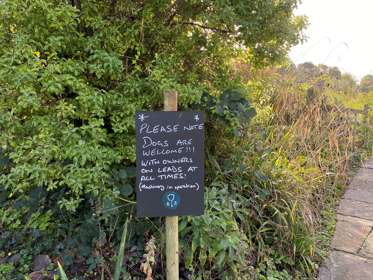 * PLEASE NOTE *
DOGS ARE
WELCOME!!!
WITH OWNERS
ON LEADS AT
ALL TIMES!
(Machinery in operation)